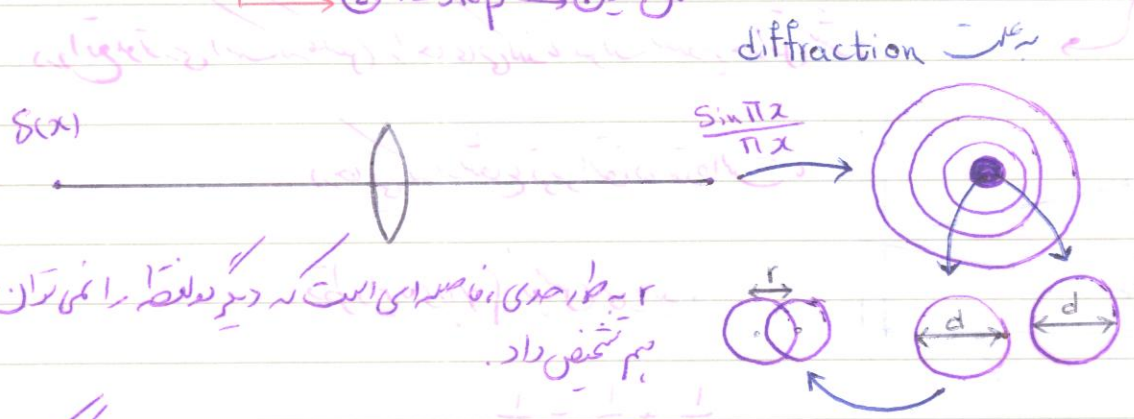 به علت diffraction
δ(x)
sin πx
πx
r به طور حدی، فاصله‌ای است که دیگر دو نقطه را نمی‌توان
هم تشخیص داد.
r
d
d